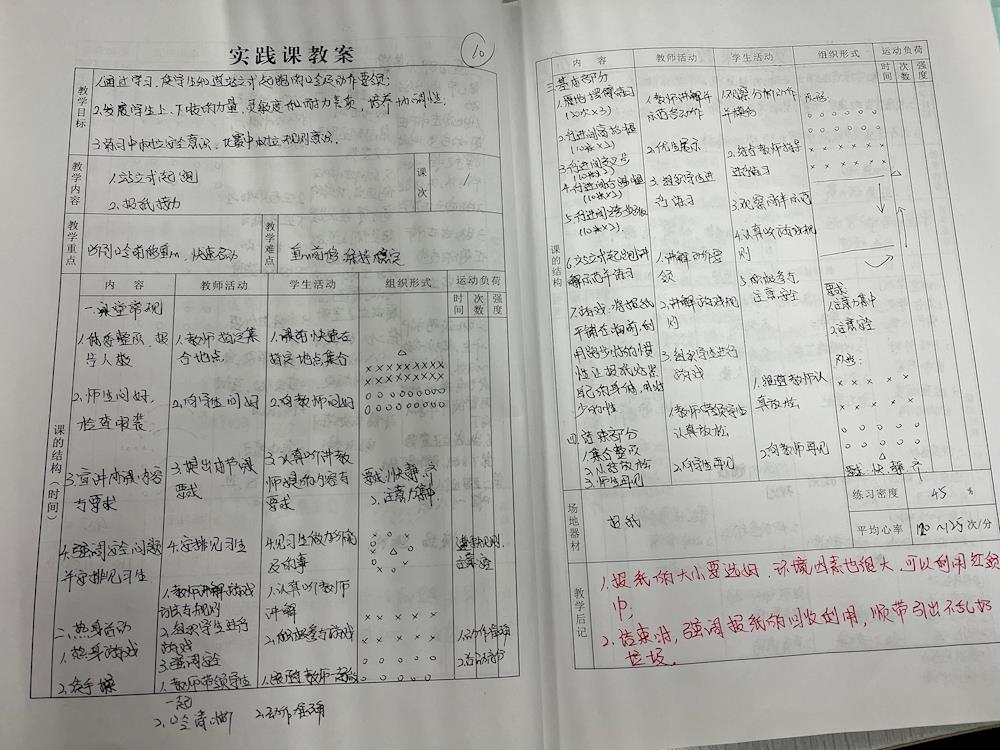 实践课教案
10
教学目标
1.通过学习,使学生知道站立式起跑的口令及动作要领;
2.发展学生上、下肢的力量,灵敏度和耐力素质,培养协调性.
3.练习中树立安全意识,比赛中树立规则意识.
教学内容
1.站立式起跑
2.报纸接力
课次
1
教学重点
听到口令前移重心,快速启动
教学难点
重心前移 保持稳定
课的结构(时间)
内 容
教师活动
学生活动
组织形式
运动负荷
时间
次数
强度
一.课堂常规
1.体委整队,报告人数
1.教师指定集合地点.
1.最前快速在指定地点集合
2.师生问好,检查服装
2.向学生问好
2.向教师问好
3.宣讲本课内容与要求
3.提出本节课要求
3.认真听讲教师提的内容与要求
要求:快静齐
2.注意力集中
4.强调安全问题并安排见习生
4.安排见习生
4.见习生做力所能及的事
遵守规则,注意安全
二.热身活动
1.热身游戏
1.教师讲解游戏方法与规则
2.组织学生进行游戏
3.强调安全
1.认真听教师讲解
2.积极参与游戏
2.徒手操
1.教师带领学生一起
2.口令清晰
1.跟随教师一起做
2.动作准确
1.动作准确
内 容
教师活动
学生活动
组织形式
运动负荷
时间
次数
强度
课的结构
三.基本部分
1.原地摆臂练习
(20次×3)
1.教师讲解并示范各动作
1.观察分析动作并模仿
队形:
2.行进间高抬腿
(10米×2)
2.优生展示
2.结合教师指导进行练习
3.行进间
(10米×2)
3.组织学生进行练习
3.观察同伴示范
4.行进间后踢腿
(10米×2)
5.行进间跨步跳
(10米×2)
4.认真听游戏规则
6.站立式起跑讲解示范并练习
1.讲解动作要领
5.积极参与,注意安全
要求:
1.注意力集中
2.注意安全
7.游戏:将报纸平铺在胸前,利用跑步时的惯性让报纸贴紧自己的身体,用时少为胜
2.讲解游戏规则
3.组织学生进行游戏
四.结束部分
1.集合整队
2.小结放松
3.师生再见
1.教师带领学生认真放松
2.向学生再见
1.跟随教师认真放松
2.向教师再见
队形:
要求:快静齐
场地器材
报纸
练习密度
45 %
平均心率
120~125 次/分
教学后记
1.报纸的大小要选好.环境因素也很大.可以利用红领巾.
2.结束时,强调报纸的回收利用,顺带引出不乱扔垃圾.